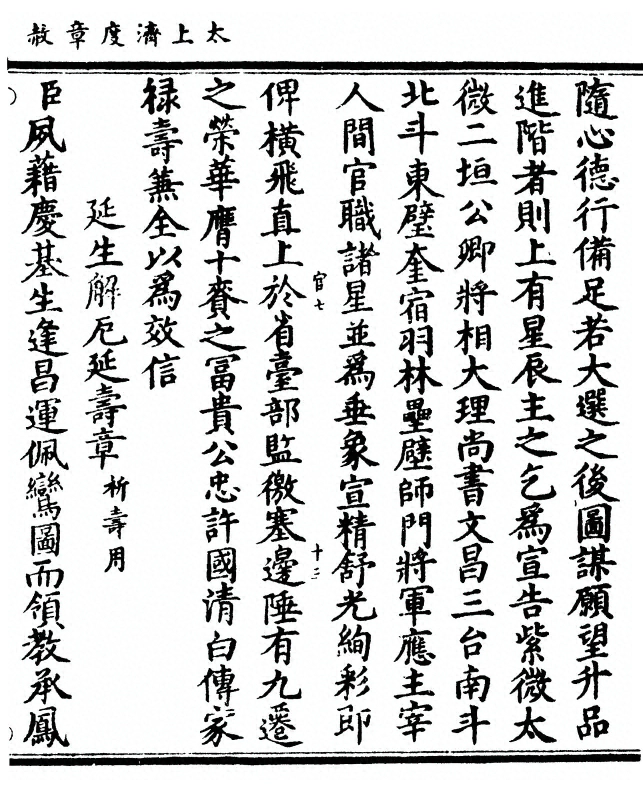 太上濟度章赦
隨心德行備足若大選之後圖謀願望升品
進階者則上有星辰主之乞為宣告紫微太
微二垣公卿將相大理尚書文昌三台南斗
北斗東壁奎宿羽林壘壁師門將軍應主宰
人間官職諸星並為垂象宣精舒光絢彩即
官七
十三
俾橫飛直上於省臺部監徼塞邊陲有九遷
之榮華膺十賚之富貴公忠許國清白傳家
祿壽兼全以為效信
延生解厄延壽章祈壽用
臣夙藉慶基生逢昌運佩鸞圖而領教承鳳